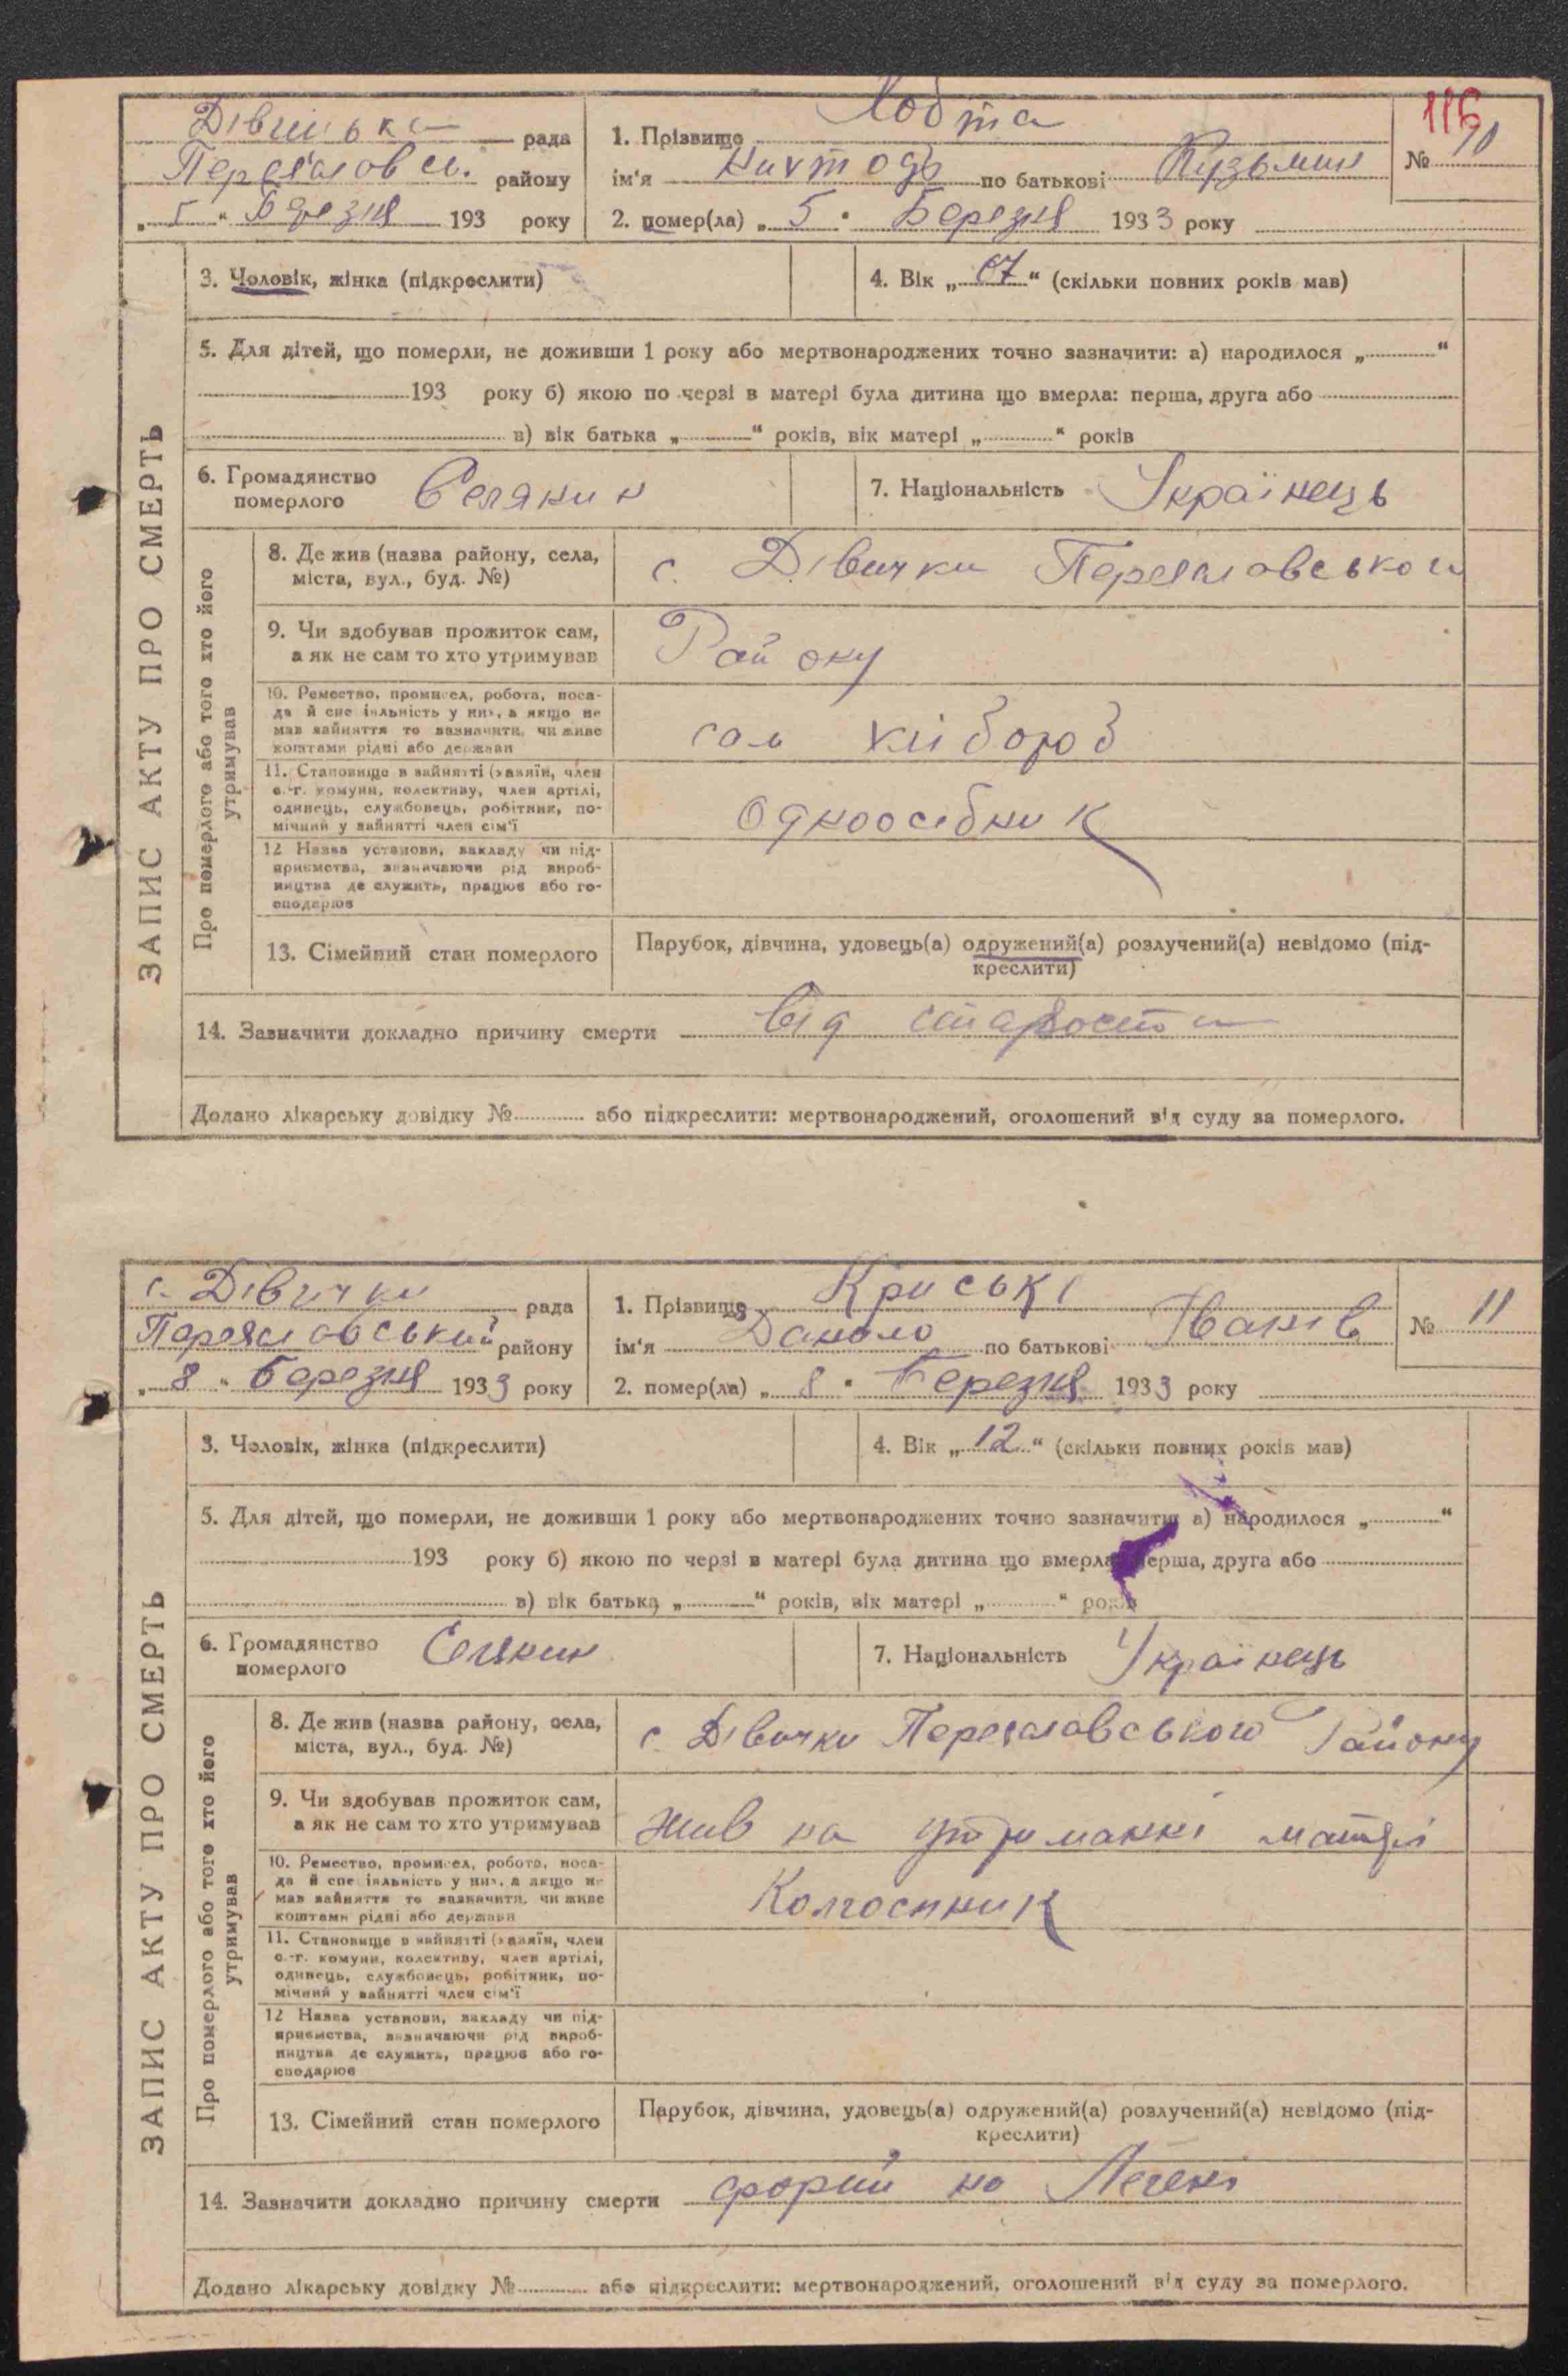 116
Дівицька рада
Переяславськ. району
„ 5 “ Березня 193 року
1. Прізвище Хобта
ім'я по батькові Кузьмин
№ 10
2. помер(ла) „ 5 “ Березня 1933 року
ЗАПИС АКТУ ПРО СМЕРТЬ
3. Чоловік, жінка (підкреслити)
4. Вік „ 67 “ (скільки повних років мав)
5. Для дітей, що померли, не доживши 1 року або мертвонароджених точно зазначити: а) народилося „ “
193 року б) якою по черзі в матері була дитина що вмерла: перша, друга або
в) вік батька „ “ років, вік матері „ “ років
6. Громадянство померлого Селянин
7. Національність Українець
Про померлого або того хто його утримував
8. Де жив (назва району, села, міста, вул., буд. №)
с. Дівички Переяславського
9. Чи здобував прожиток сам, а як не сам то хто утримував
Району
10. Ремество, промисел, робота, посада й спеціяльність у них, а якщо не мав зайняття то зазначити, чи живе коштами рідні або держави
сам хлібороб
11. Становище в зайнятті (хазяїн, член с.-г. комуни, колективу, член артілі, одинець, службовець, робітник, помічний у зайнятті член сім'ї
Одноосібник
12 Назва установи, закладу чи підприємства, зазначаючи рід виробництва де служить, працює або господарює
13. Сімейний стан померлого
Парубок, дівчина, удовець(а) одружений(а) розлучений(а) невідомо (підкреслити)
14. Зазначити докладно причину смерти Від старости
Додано лікарську довідку № або підкреслити: мертвонароджений, оголошений від суду за померлого.
с. Дівички рада
Переяславський району
„ 8 “ Березня 1933 року
1. Прізвище
ім'я Данило по батькові Іванів
№ 11
2. помер(ла) „ 8 “ Березня 1933 року
ЗАПИС АКТУ ПРО СМЕРТЬ
3. Чоловік, жінка (підкреслити)
4. Вік „ 12 “ (скільки повних років мав)
5. Для дітей, що померли, не доживши 1 року або мертвонароджених точно зазначити: а) народилося „ “
193 року б) якою по черзі в матері була дитина що вмерла: перша, друга або
в) вік батька „ “ років, вік матері „ “ років
6. Громадянство померлого Селянин
7. Національність Українець
Про померлого або того хто його утримував
8. Де жив (назва району, села, міста, вул., буд. №)
с. Дівички Переяславського Району
9. Чи здобував прожиток сам, а як не сам то хто утримував
жив на утриманні матері
10. Ремество, промисел, робота, посада й спеціяльність у них, а якщо не мав зайняття то зазначити, чи живе коштами рідні або держави
Колгоспник
11. Становище в зайнятті (хазяїн, член с.-г. комуни, колективу, член артілі, одинець, службовець, робітник, помічний у зайнятті член сім'ї
12 Назва установи, закладу чи підприємства, зазначаючи рід виробництва де служить, працює або господарює
13. Сімейний стан померлого
Парубок, дівчина, удовець(а) одружений(а) розлучений(а) невідомо (підкреслити)
14. Зазначити докладно причину смерти на Легені
Додано лікарську довідку № або підкреслити: мертвонароджений, оголошений від суду за померлого.